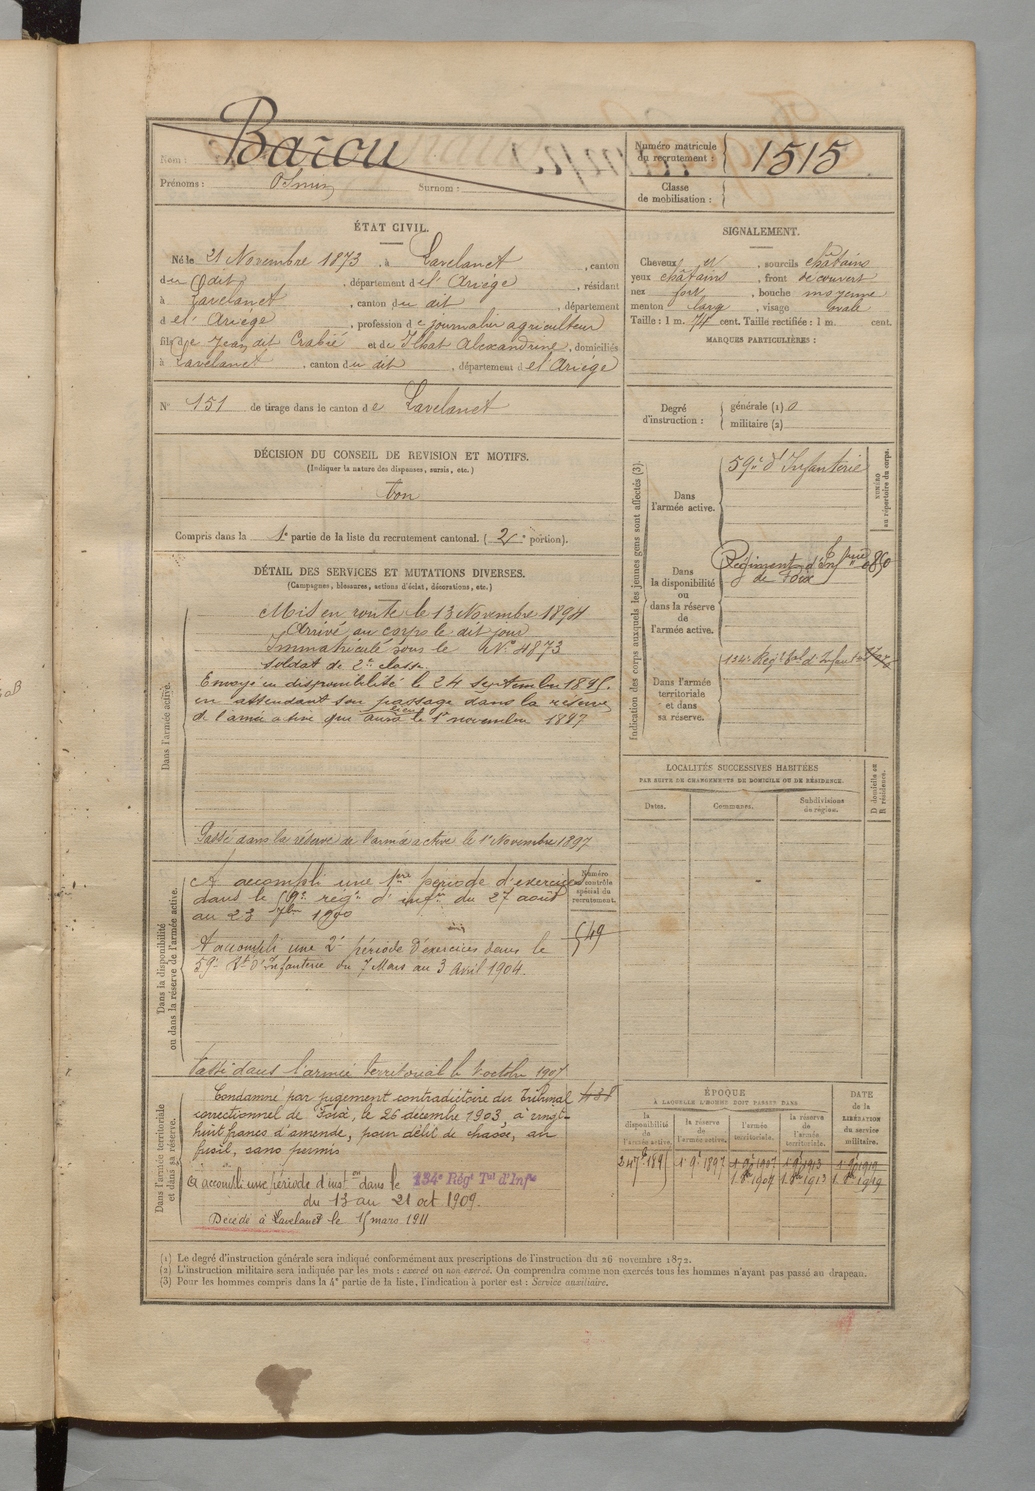 Nom : Barou
Numéro matricule du recrutement : 1515
Prénoms : Osmin Surnom :
Classe de mobilisation :
ÉTAT CIVIL.
Né le 21 Novembre 1873, à Lavelanet, canton
du dit, département de l'Ariége, résidant
à Lavelanet, canton du dit, département
de l'Ariége, profession de journalier agriculteur
fils de Jean dit Crabié et de Ilhat Alexandrine, domiciliés
à Lavelanet, canton du dit, département de l'Ariége
N° 151 de tirage dans le canton de Lavelanet
SIGNALEMENT.
Cheveux et, sourcils châtains
yeux châtains, front découvert
nez fort, bouche moyenne
menton large, visage ovale
Taille : 1 m. 74 cent. Taille rectifiée : 1 m. cent.
MARQUES PARTICULIÈRES :
Degré d'instruction : générale (1) 0
militaire (2)
DÉCISION DU CONSEIL DE REVISION ET MOTIFS.
(Indiquer la nature des dispenses, sursis, etc.)
bon
Compris dans la 1e partie de la liste du recrutement cantonal. (2e portion).
DÉTAIL DES SERVICES ET MUTATIONS DIVERSES.
(Campagnes, blessures, actions d'éclat, décorations, etc.)
Dans l'armée active.
Mis en route le 13 Novembre 1894
Arrivé au corps le dit jour
Immatriculé sous le N° 4873
soldat de 2e classe.
Envoyé en disponibilité le 24 septembre 1895.
en attendant son passage dans la réserve
de l'armée active qui aura lieu le 1er novembre 1897
Passé dans la réserve de l'armée active le 1er Novembre 1897
Dans la disponibilité ou dans la réserve de l'armée active.
A accompli une 1ère période d'exercices
dans le 59e régt d'infie du 27 août
au 23 7bre 1900
A accompli une 2e période d'exercices dans le
59e Rt d'Infanterie du 7 Mars au 3 Avril 1904.
Passé dans l'armée territoriale le 1er octobre 1907
Numéro au contrôle spécial du recrutement.
549
Dans l'armée territoriale et dans sa réserve.
Condamné par jugement contradictoire du Tribunal
correctionnel de Foix, le 26 décembre 1903, à vingt-
huit francs d'amende, pour délit de chasse, au
fusil, sans permis
A accompli une période d'inston dans le 134e Régt Tal d'Infie
du 13 au 21 oct 1909.
Décédé à Lavelanet le 15 mars 1911
Indication des corps auxquels les jeunes gens sont affectés (3).
NUMÉRO au répertoire du corps.
Dans l'armée active.
59e d'Infanterie
Dans la disponibilité ou dans la réserve de l'armée active.
Régiment d'Infanterie
de Foix
Dans l'armée territoriale et dans sa réserve.
134e Régt tal d'Infanterie
LOCALITÉS SUCCESSIVES HABITÉES
PAR SUITE DE CHANGEMENTS DE DOMICILE OU DE RÉSIDENCE.
Dates.
Communes.
Subdivisions de région.
D domicile ou R résidence.
ÉPOQUE
À LAQUELLE L'HOMME DOIT PASSER DANS
la disponibilité de l'armée active.
la réserve de l'armée active.
l'armée territoriale.
la réserve de l'armée territoriale.
DATE de la LIBÉRATION du service militaire.
24 7bre 1895
1er 9bre 1897
1er 9bre 1907
1er 9bre 1913
1er 9bre 1919
1er 8bre 1907
1er 8bre 1913
1er 8bre 1919
(1) Le degré d'instruction générale sera indiqué conformément aux prescriptions de l'instruction du 26 novembre 1872.
(2) L'instruction militaire sera indiquée par les mots : exercé ou non exercé. On comprendra comme non exercés tous les hommes n'ayant pas passé au drapeau.
(3) Pour les hommes compris dans la 4e partie de la liste, l'indication à porter est : Service auxiliaire.